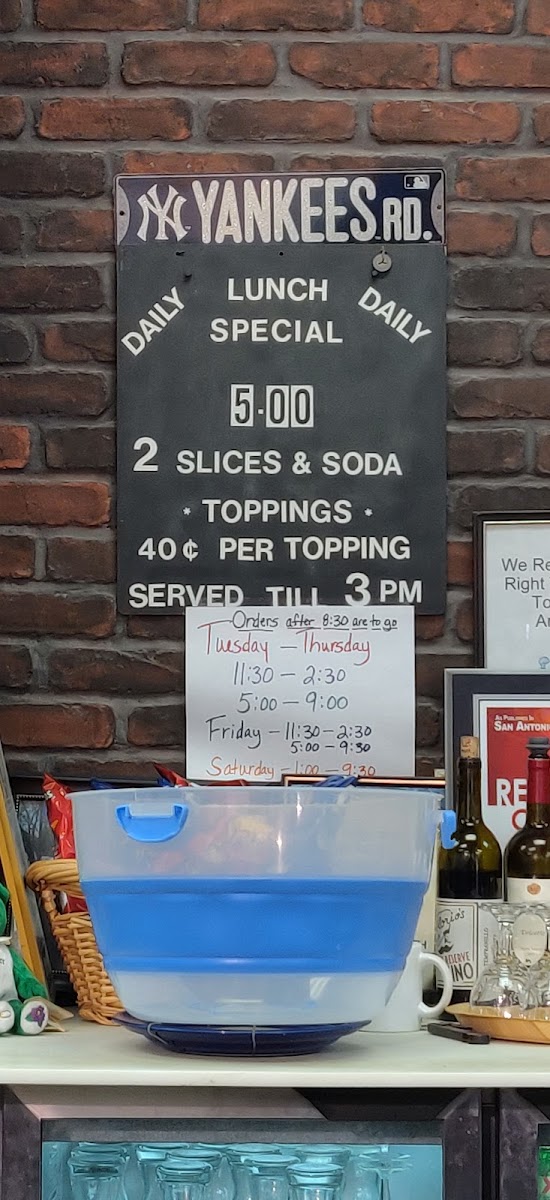 NY YANKEES RD.
DAILY LUNCH DAILY
SPECIAL
5.00
2 SLICES & SODA
* TOPPINGS *
40¢ PER TOPPING
SERVED TILL 3 PM
Orders after 8:30 are to go
Tuesday — Thursday
11:30 — 2:30
5:00 — 9:00
Friday — 11:30 — 2:30
5:00 — 9:30
Saturday — 1:00 — 9:30
We Re
Right
To
A
AS PUBLISHED IN
SAN ANTONIO
RE